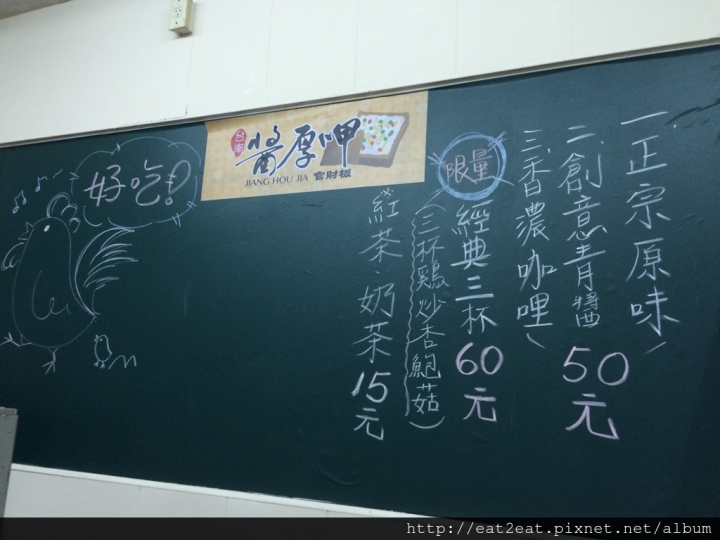 一、正宗原味
二、創意青醬
三、香濃咖哩
50元
限量
經典三杯60元
(三杯鷄炒杏鮑菇)
紅茶、奶茶15元
台南
醬厚呷
JIANG HOU JIA 官財板
好吃!?
http://eat2eat.pixnet.net/album